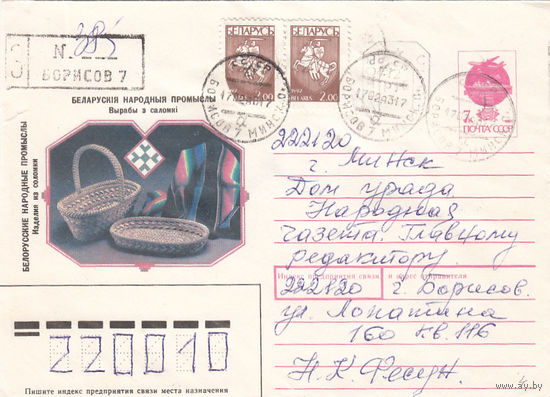 N. 385
БОРИСОВ 7
БЕЛАРУСЬ
2.00
1992 BELARUS
БЕЛАРУСЬ
2.00
1992 BELARUS
7к
ПОЧТА СССР
БОРИСОВ 7 МИНСКО
БЕЛАРУСКІЯ НАРОДНЫЯ ПРОМЫСЛЫ
Вырабы з саломкі
БЕЛОРУССКИЕ НАРОДНЫЕ ПРОМЫСЛЫ
Изделия из соломки
222120
г. Минск
Дом урада
Народная
газета. Главному
редактору.
Индекс предприятия связи и адрес отправителя
222120 г. Борисов.
ул. Лопатина
160 кв. 116
Н. К. Фесун.
220010
Пишите индекс предприятия связи места назначения
www.ay.by